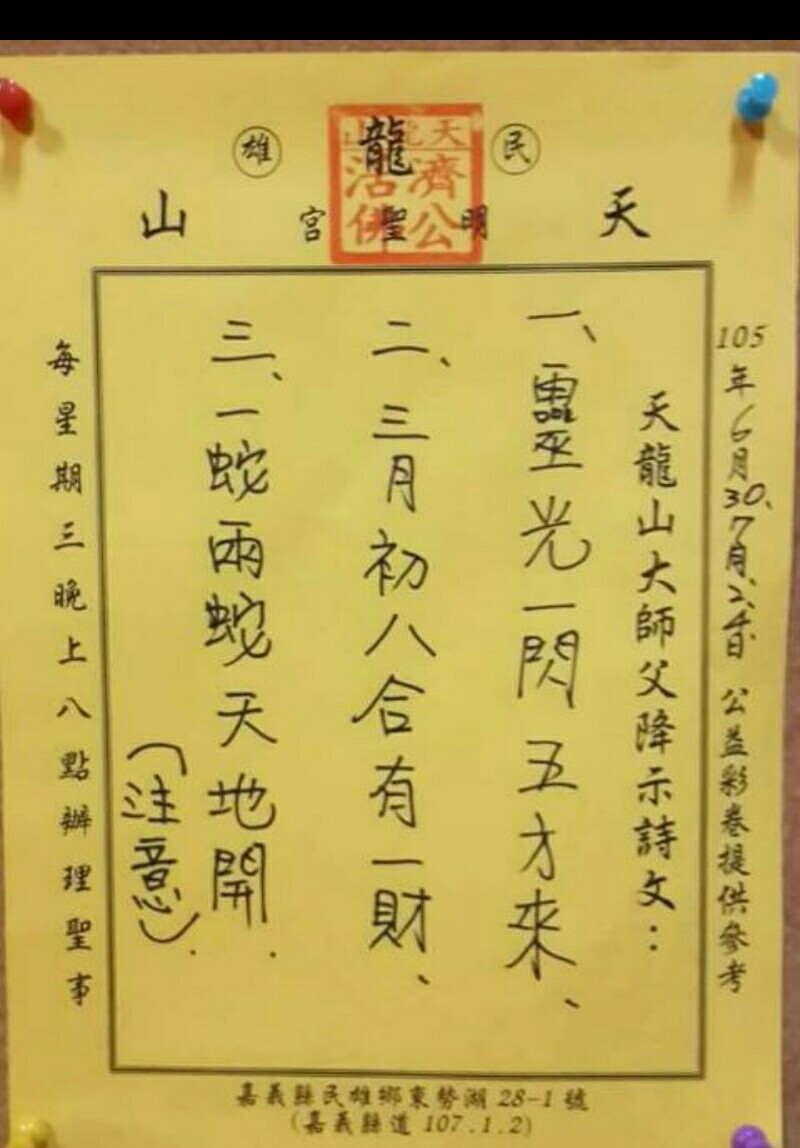 民 龍 雄
天 明聖宮 山
天龍山
濟公
活佛
105年6月30、7月2、5日 公益彩卷提供參考
天龍山大師父降示詩文：
一、靈光一閃五方來、
二、三月初八合有一財、
三、一蛇兩蛇天地開.
（注意）.
每星期三晚上八點辦理聖事
嘉義縣民雄鄉東勢湖28-1號
(嘉義縣道107.1.2)